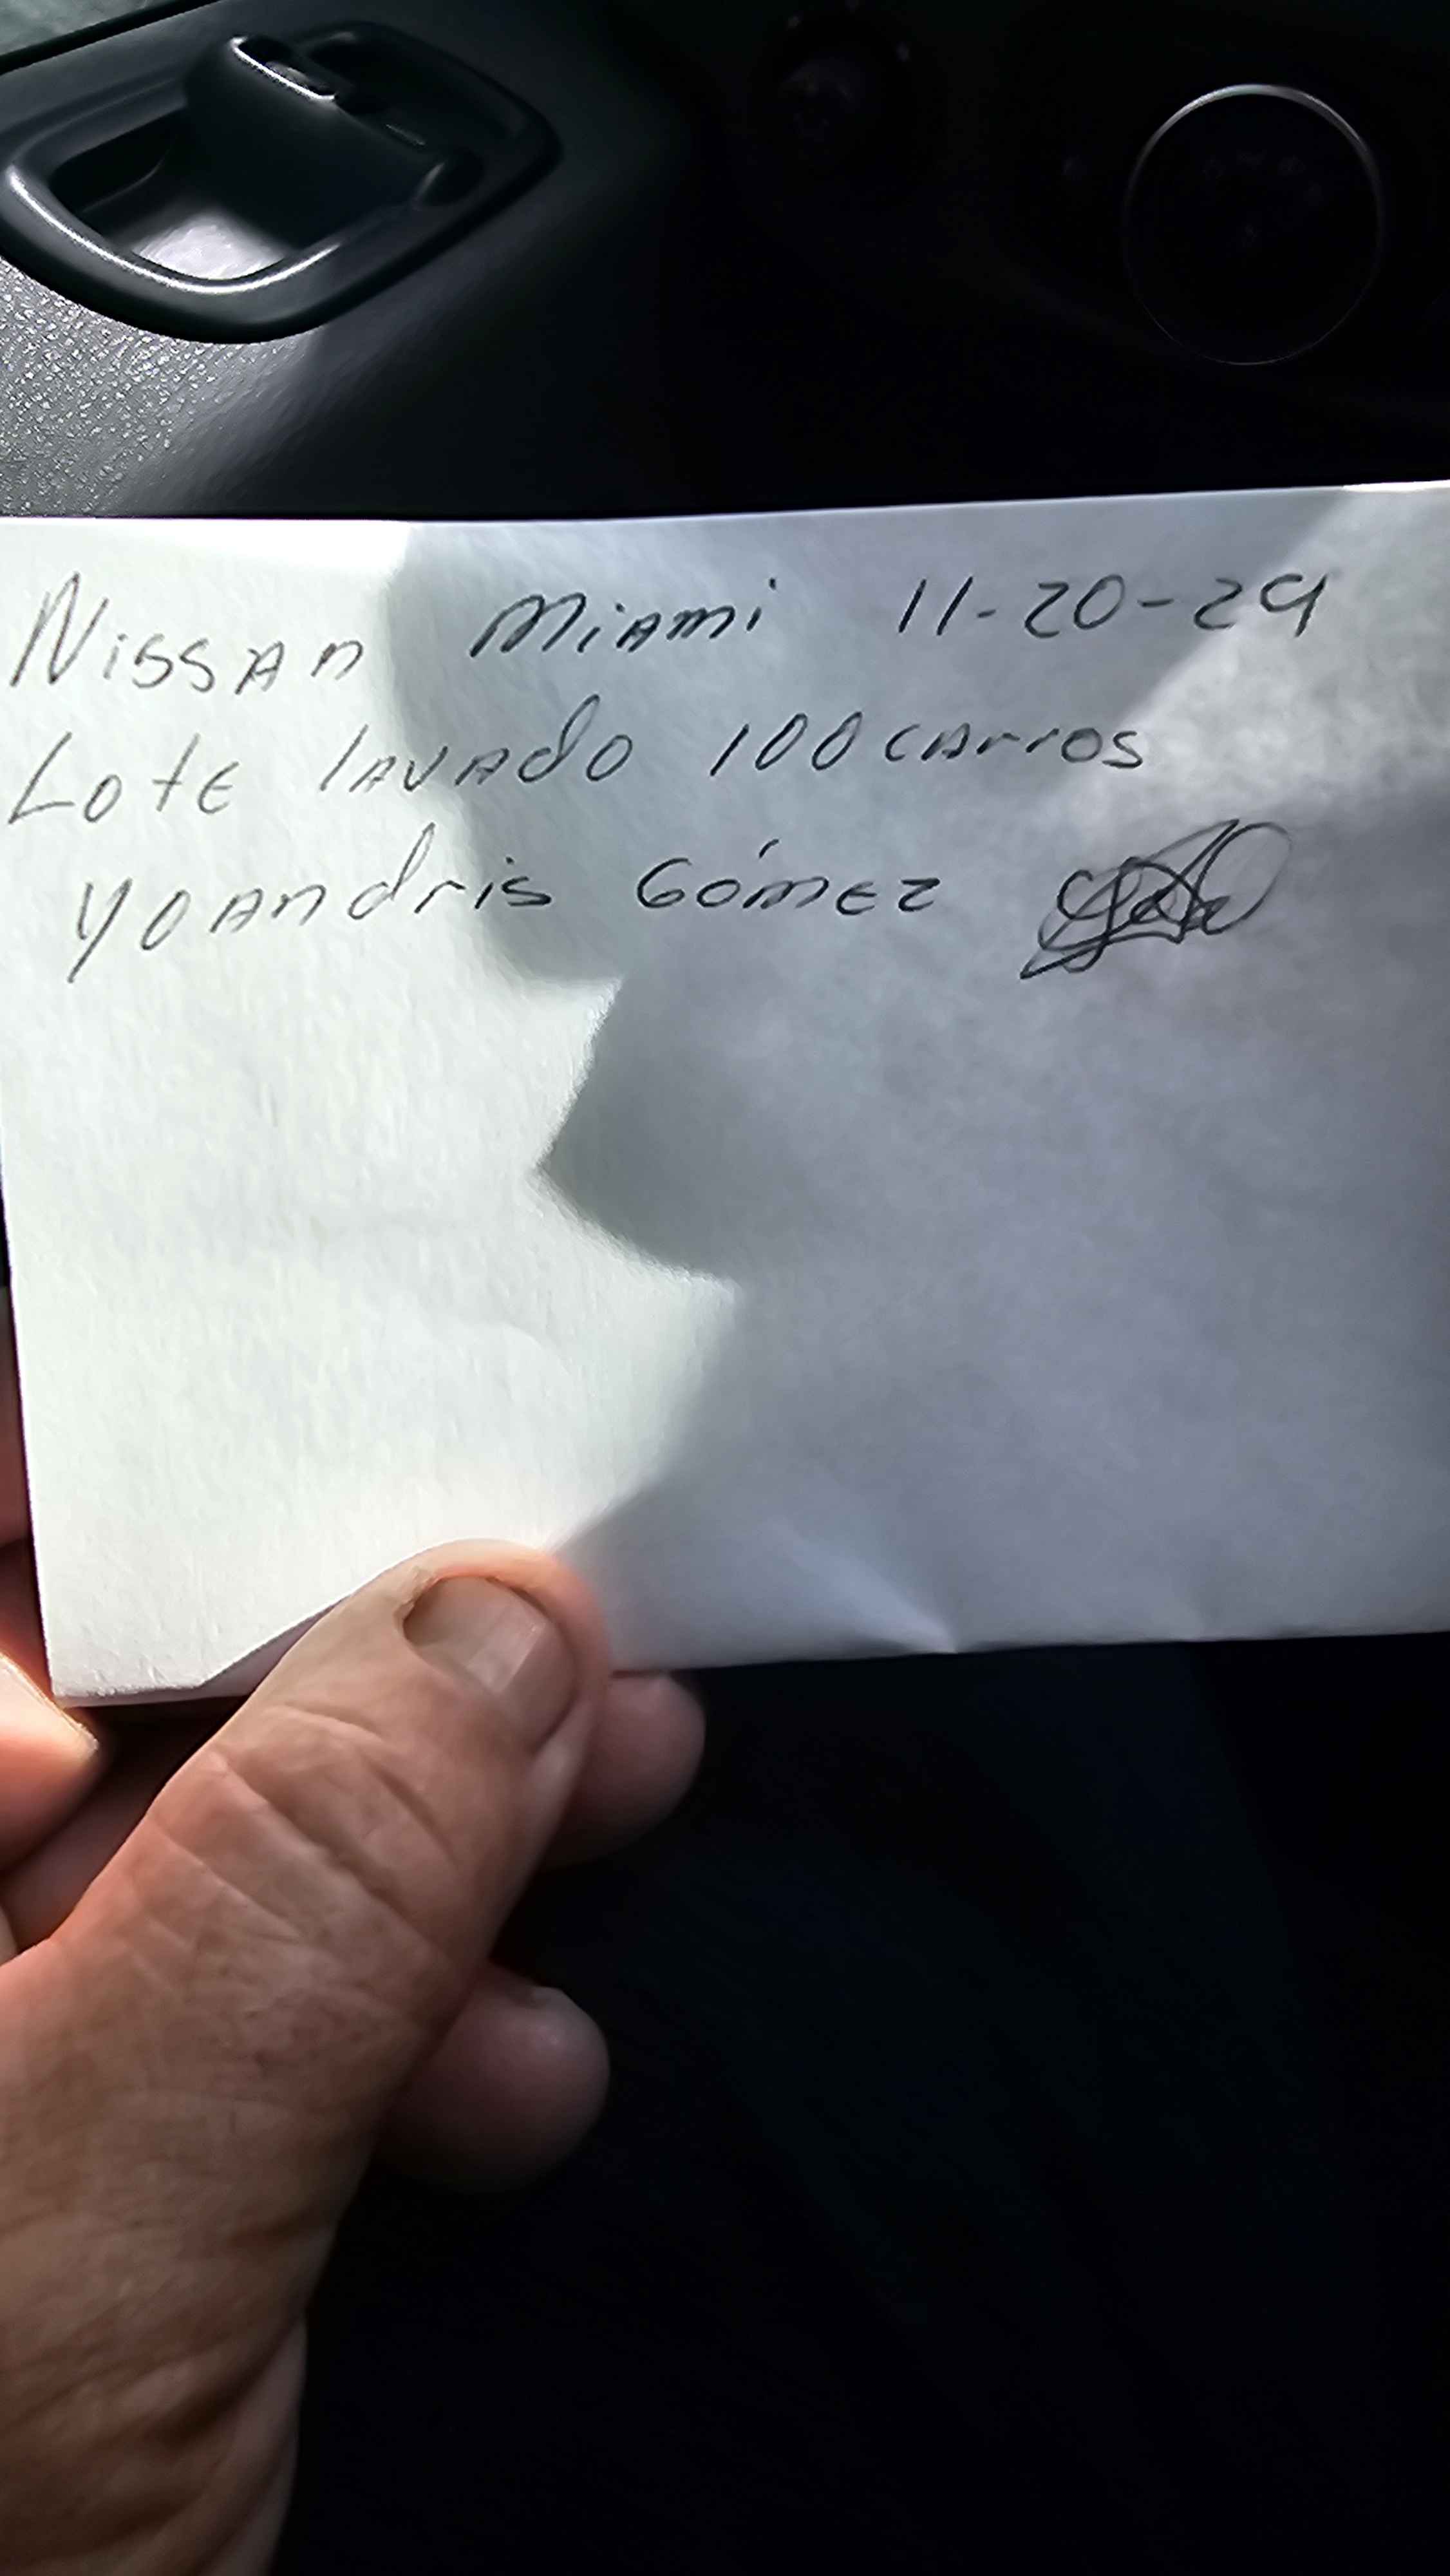 Nissan Miami 11-20-24
Lote lavado 100 carros
Yoandris Gómez